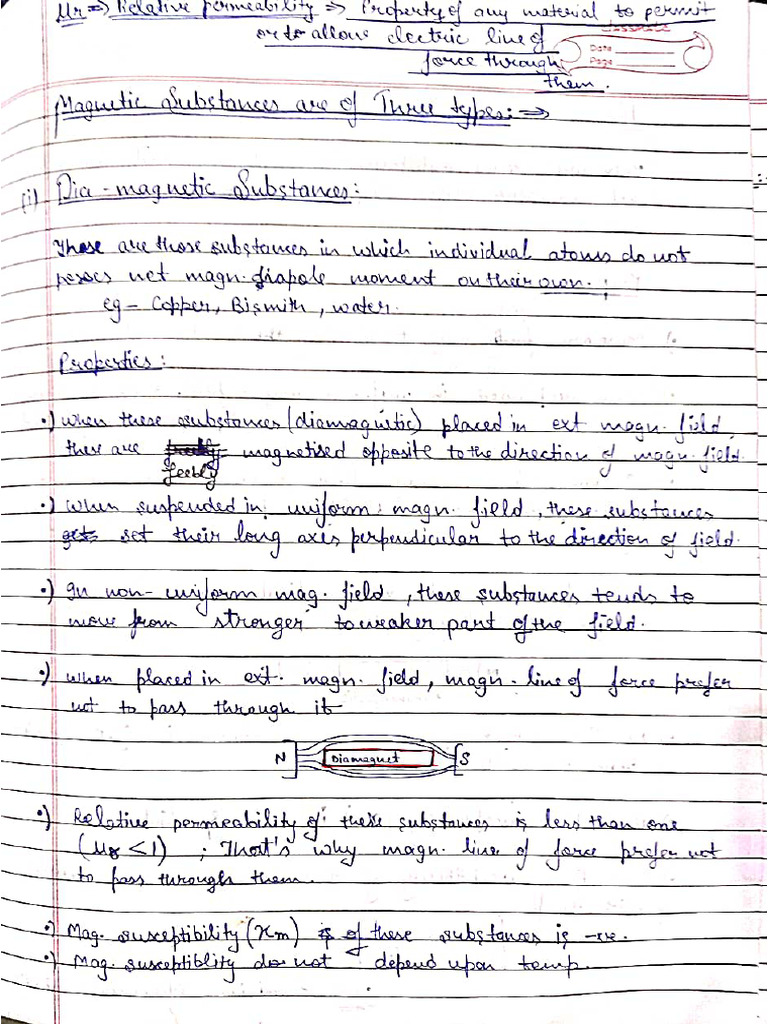 μr ⇒ Relative permeability ⇒ Property of any material to permit
or to allow electric line of
force through
them.
CLASSMATE
Date
Page
Magnetic Substances are of Three types: ⇒
(i) Dia-magnetic Substances:
These are those substances in which individual atoms do not
posses net magn. diapole moment on their own.
eg - Copper, Bismith, water.
Properties:
•) when these substances (diamagnetic) placed in ext magn. field,
these are feebly magnetised opposite to the direction of magn. field.
•) when suspended in uniform magn. field, these substances
set their long axis perpendicular to the direction of field.
•) In non-uniform mag. field, these substances tends to
move from stronger to weaker part of the field.
•) when placed in ext. magn. field, magn. line of force prefer
not to pass through it
N Diamagnet S
•) Relative permeability of these substances is less than one
(μr < 1) ; That's why magn. line of force prefer not
to pass through them.
•) Mag. susceptibility (χm) of these substances is -ve.
•) Mag. susceptiblity do not depend upon temp.